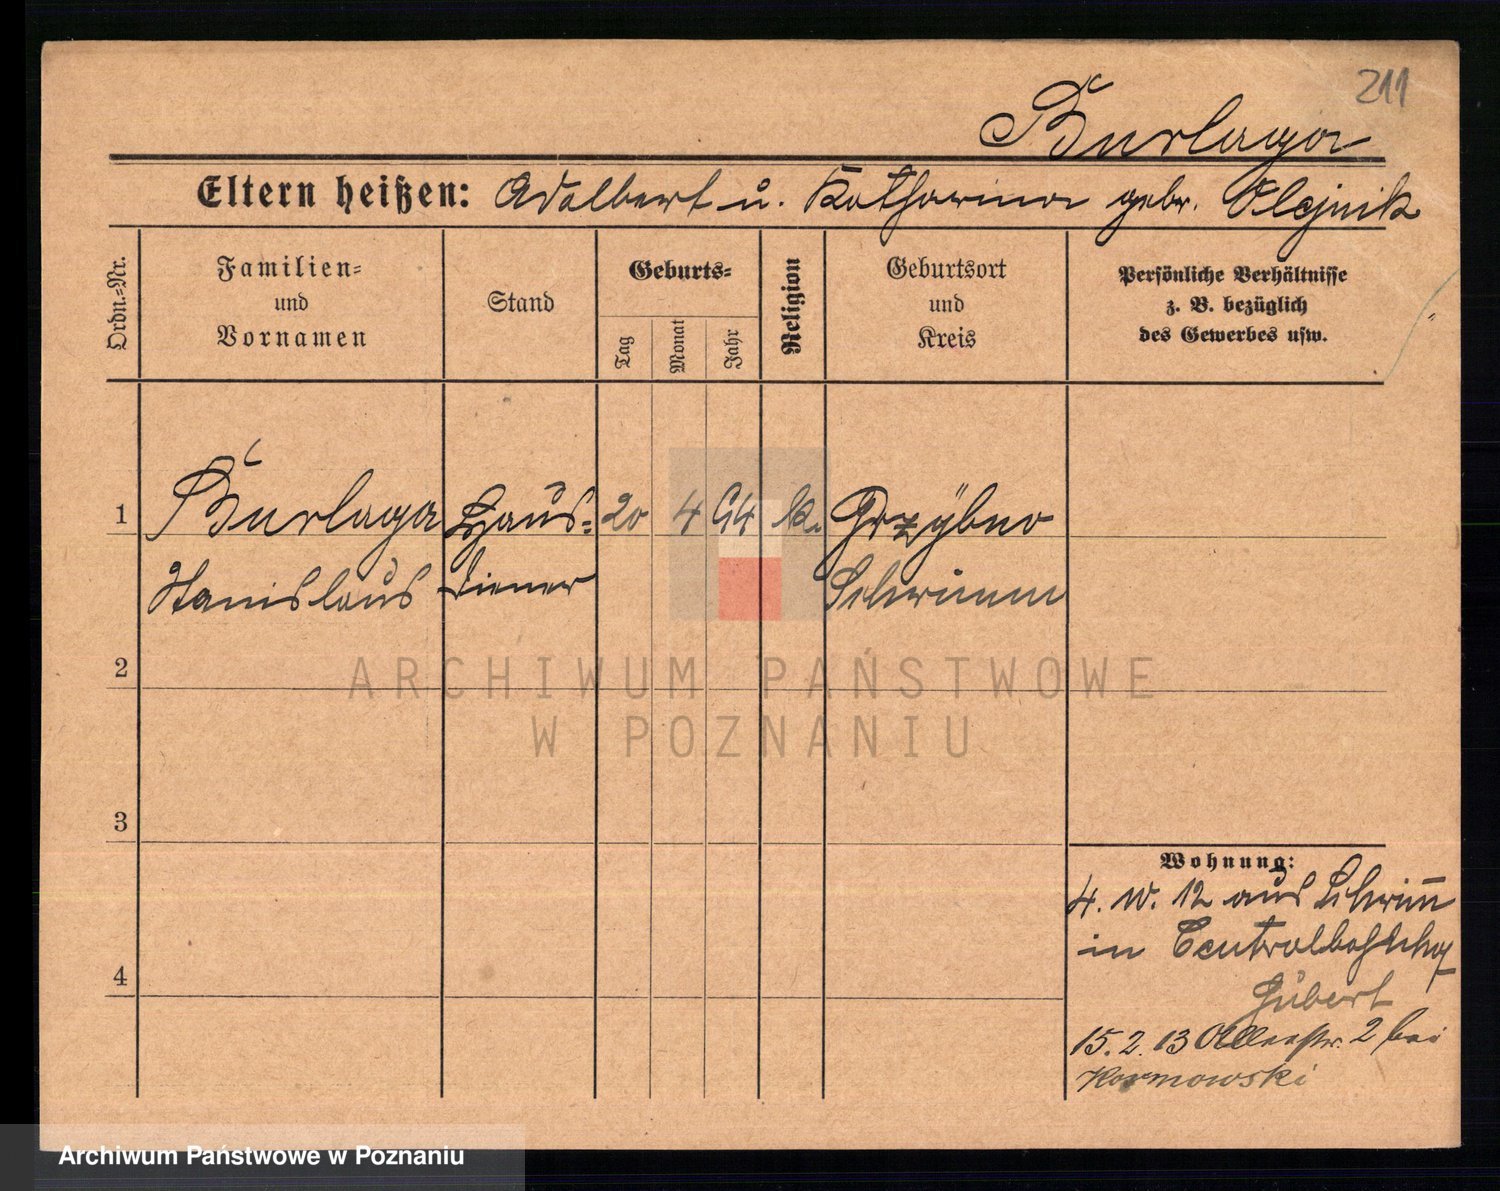 211
Burlaga
Eltern heißen: Adalbert u. Katharina gebr. Olejnik
Ordn.-Nr.
Familien-
und
Vornamen
Stand
Geburts-
Tag
Monat
Jahr
Religion
Geburtsort
und
Kreis
Persönliche Verhältnisse
z. B. bezüglich
des Gewerbes usw.
1 Burlaga Haus- 20 4 94 k. Grzybno
Stanislaus diener Schrimm
2
3
4
Wohnung:
4. 10. 12 aus Schrimm
in
15. 2. 13 2 bei
ARCHIWUM PAŃSTWOWE
W POZNANIU
Archiwum Państwowe w Poznaniu